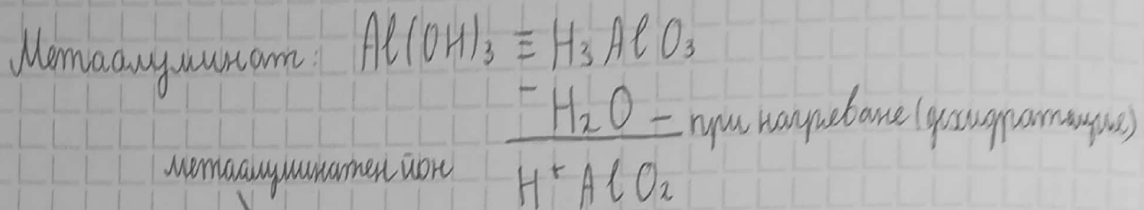 Метаалуминат: Al(OH)₃ ≡ H₃AlO₃
- H₂O – при нагреване (дехидратация)
метаалуминатен йон H⁺AlO₂